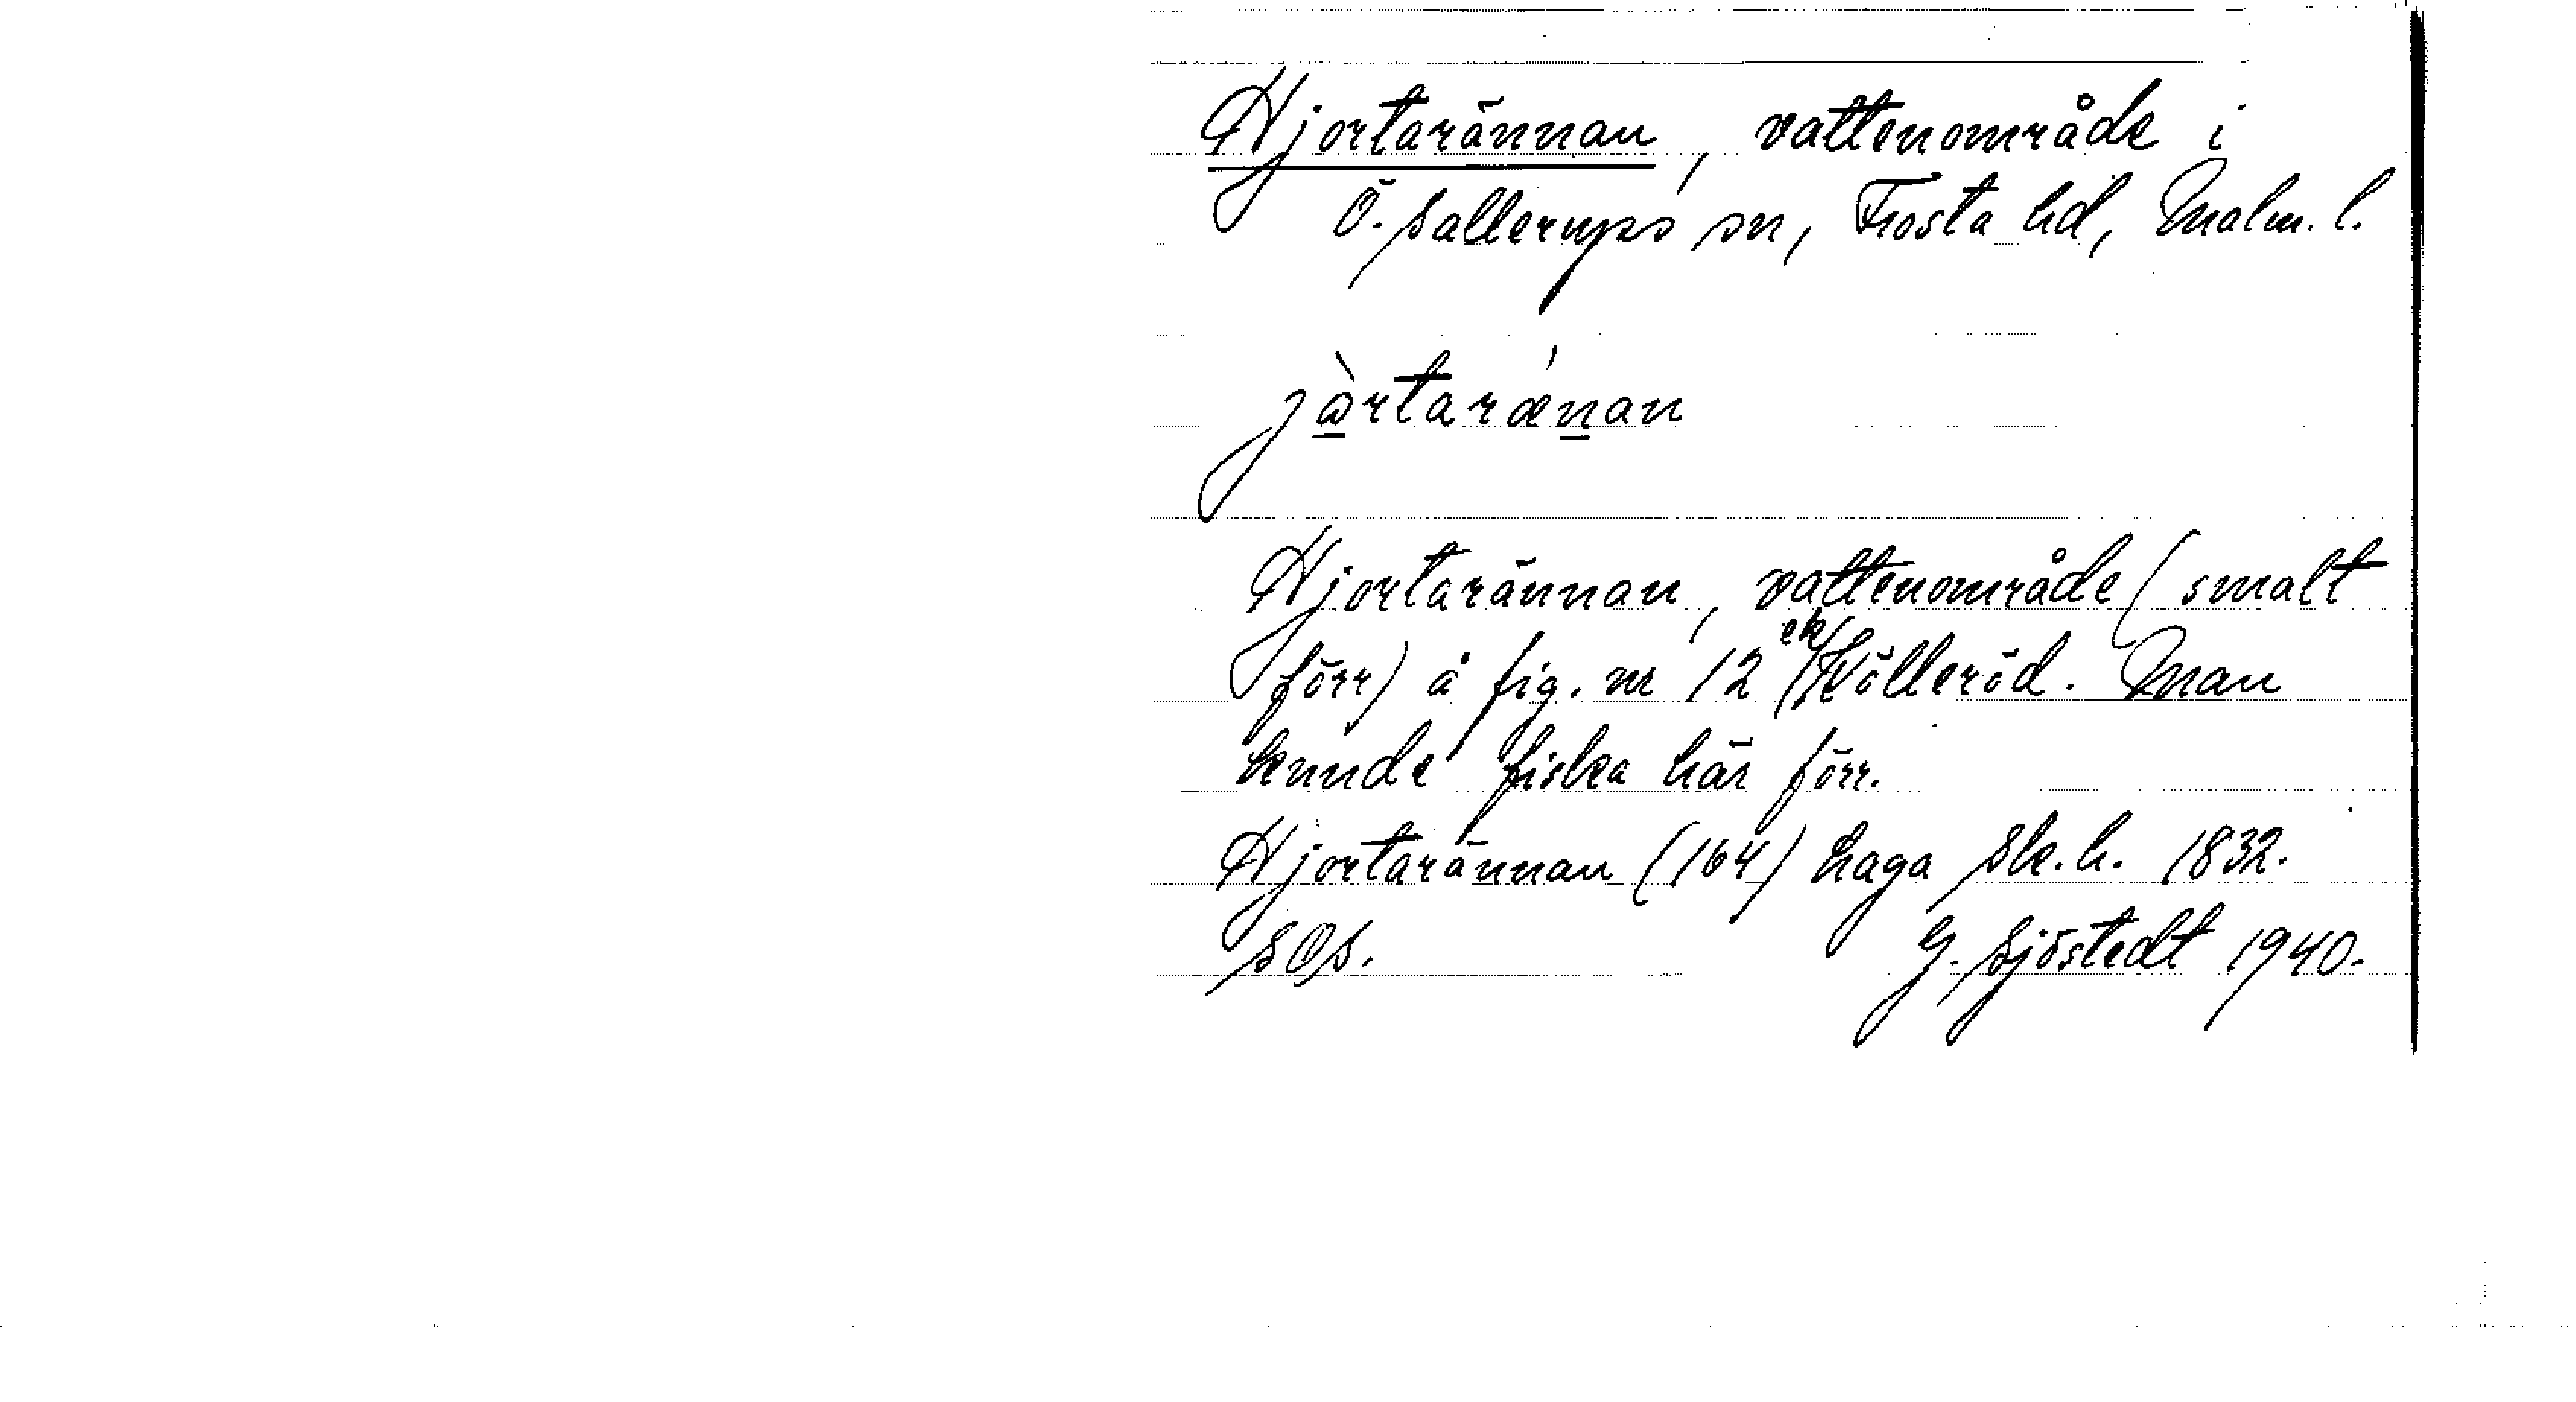 Hjortarännan, vattenområde i
Ö. Sallerups sn, Frosta hd, Malm. l.
jàrtarǽnan
Hjortarännan, vattenområde (smalt
förr) å fig. nr 12 Kölleröd. Man
kunde fiska här förr.
Hjortarännan (164) haga Sk. h. 1832.
SOS. G. Sjöstedt 1940.